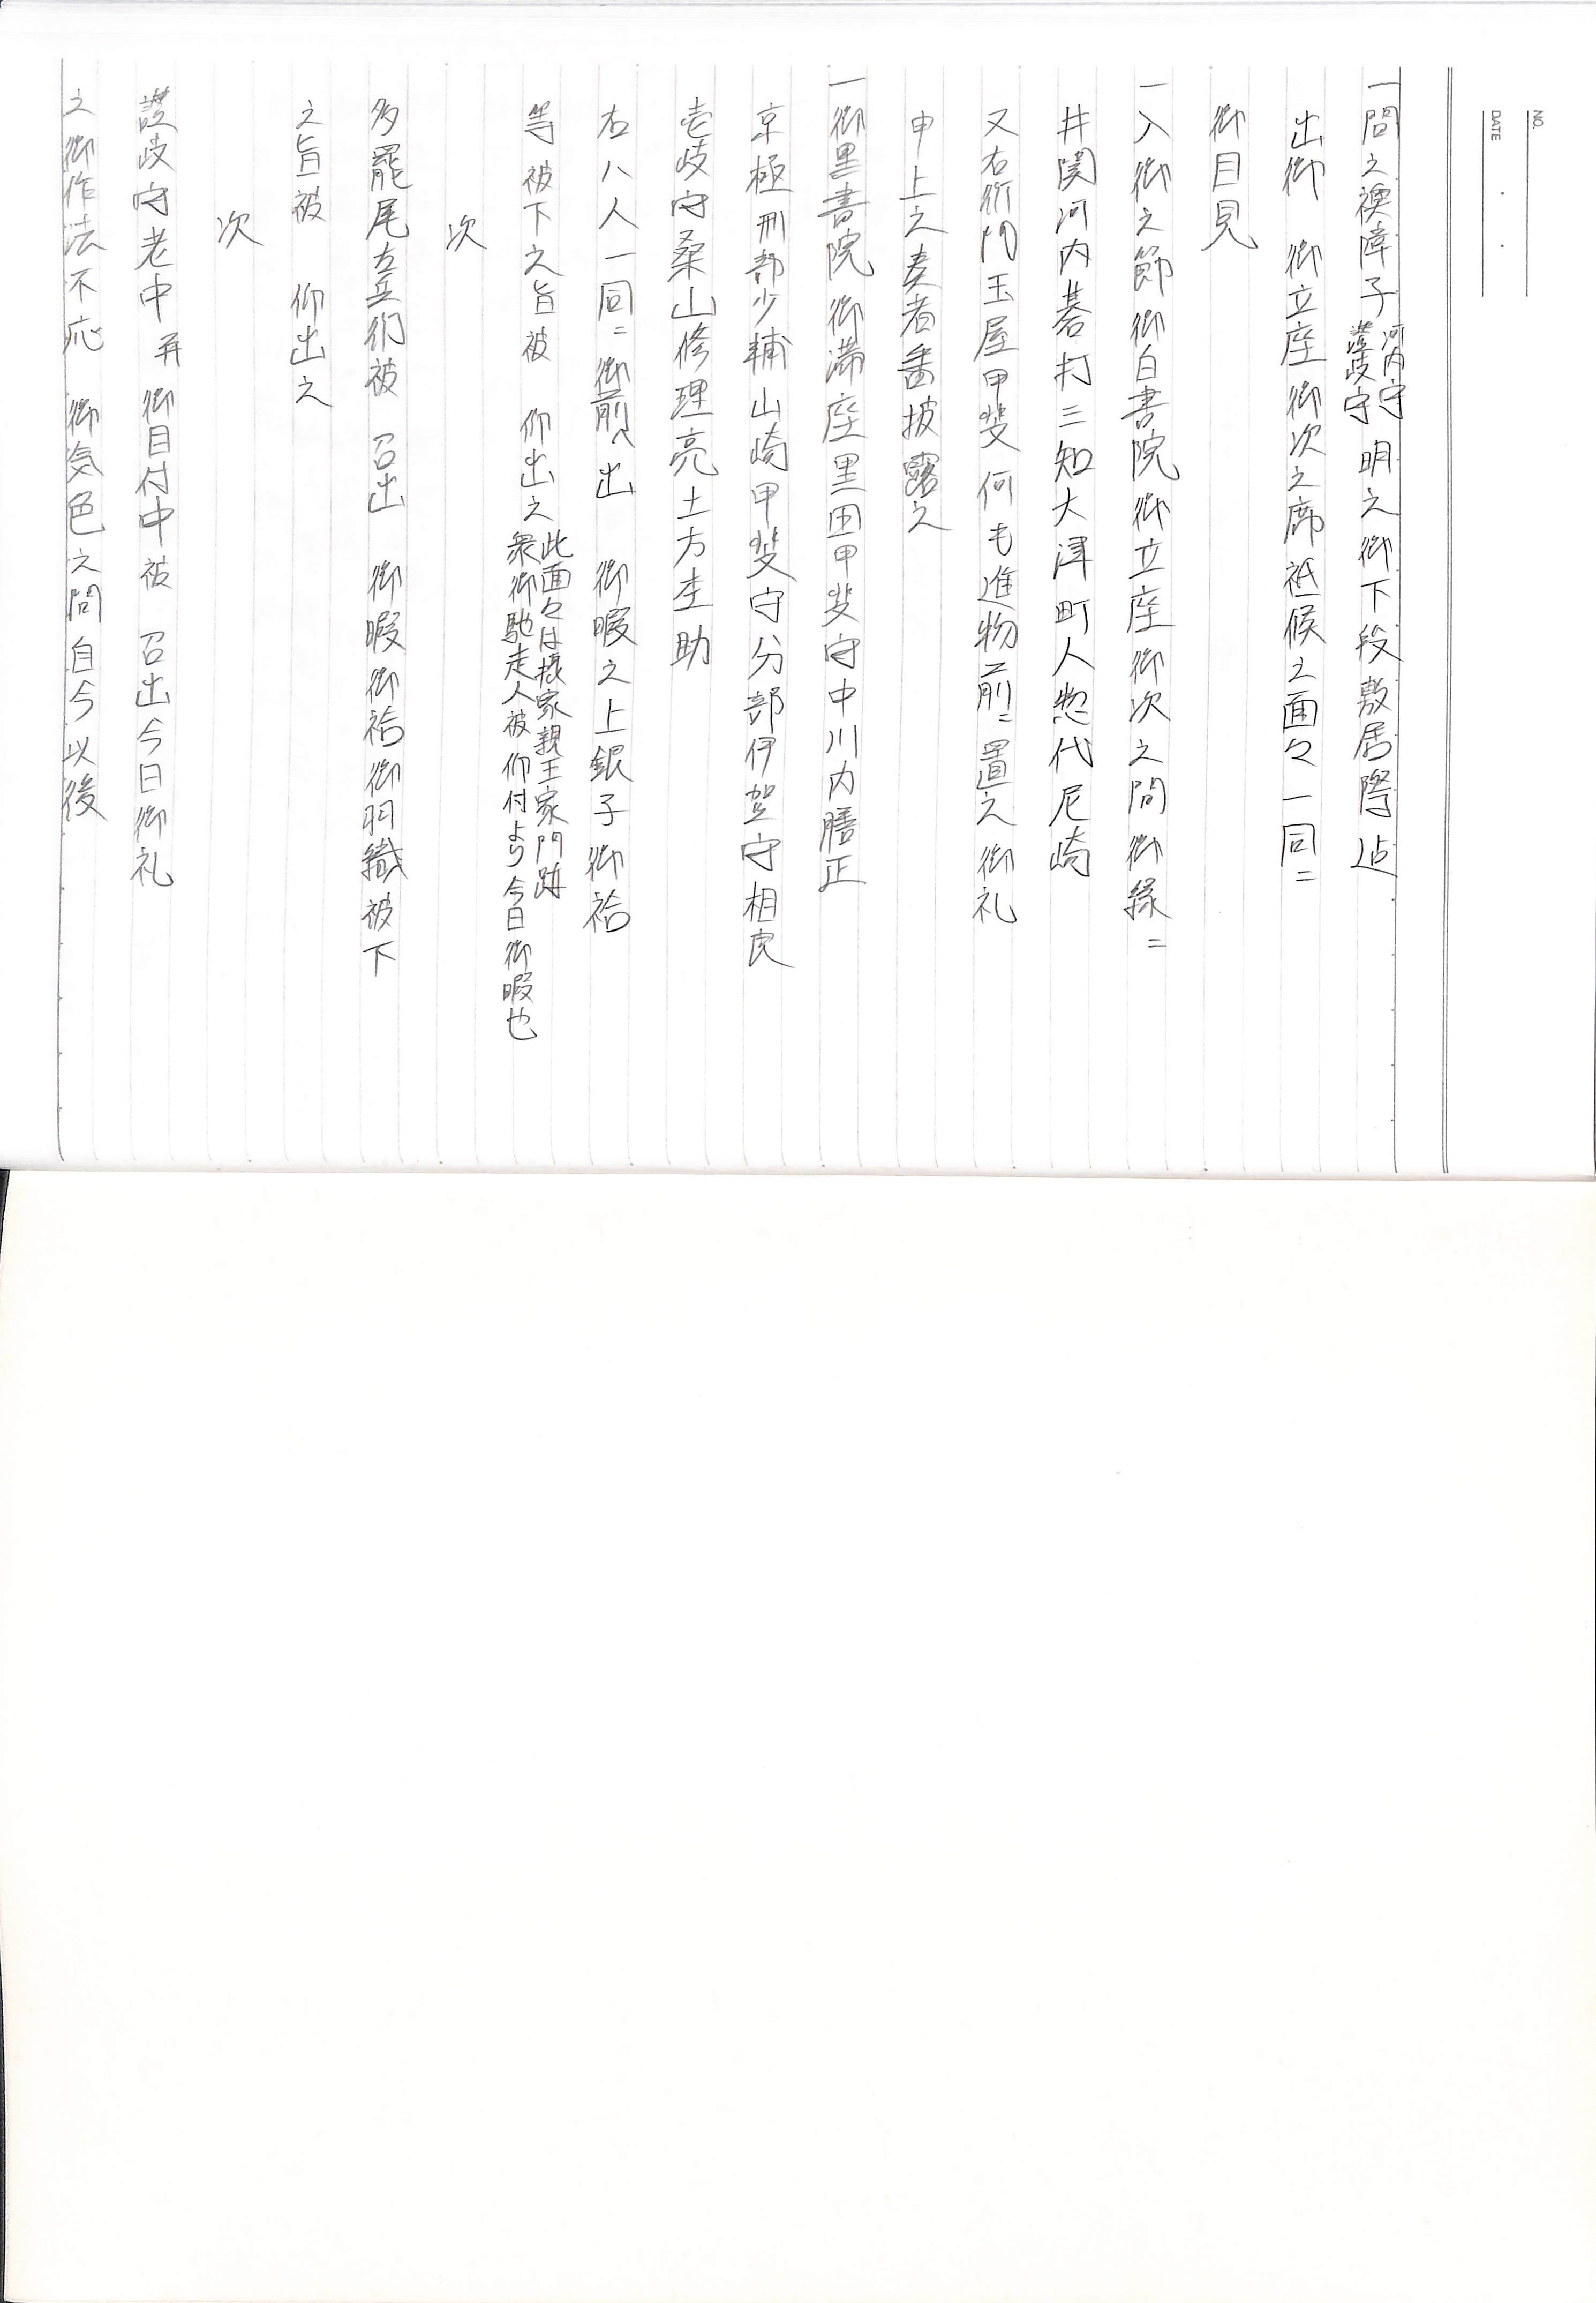 NO.
DATE
一間之襖障子河内守讃岐守明之御下段敷居際迠
出御　御立座御次之席祗候之面々一同ニ
御目見
一入御之節御白書院御立座御次之間御縁ニ
井関河内碁打三知大津町人惣代尼崎
又右衛門玉屋甲斐何も進物前ニ置之御礼
申上之奏者番披露之
一御黒書院御満座黒田甲斐守中川内膳正
京極刑部少輔山崎甲斐守分部伊賀守相良
壱岐守桑山修理亮土方杢助
右八人一同ニ御前へ出　御暇之上銀子御袷
等被下之旨被　仰出之此面々は摂家親王家門跡
衆御馳走人被仰付より今日御暇也
次
多罷尾左兵衛被　召出　御暇御袷御羽織被下
之旨被　仰出之
次
讃岐守老中并御目付中被　召出今日御礼
之御作法不応　御気色之間自今以後